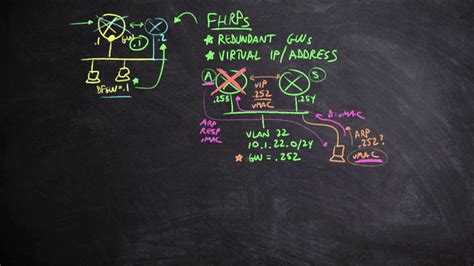 FHRPs
★ REDUNDANT GWs
★ VIRTUAL IP/ADDRESS
.1
GW
.1
.2
DFGW=.1
A
S
VIP
.252
vMAC
.253
.254
D:vMAC
ARP
RESP
vMAC
VLAN 22
10.1.22.0/24
★ GW = .252
ARP
.252?
vMAC